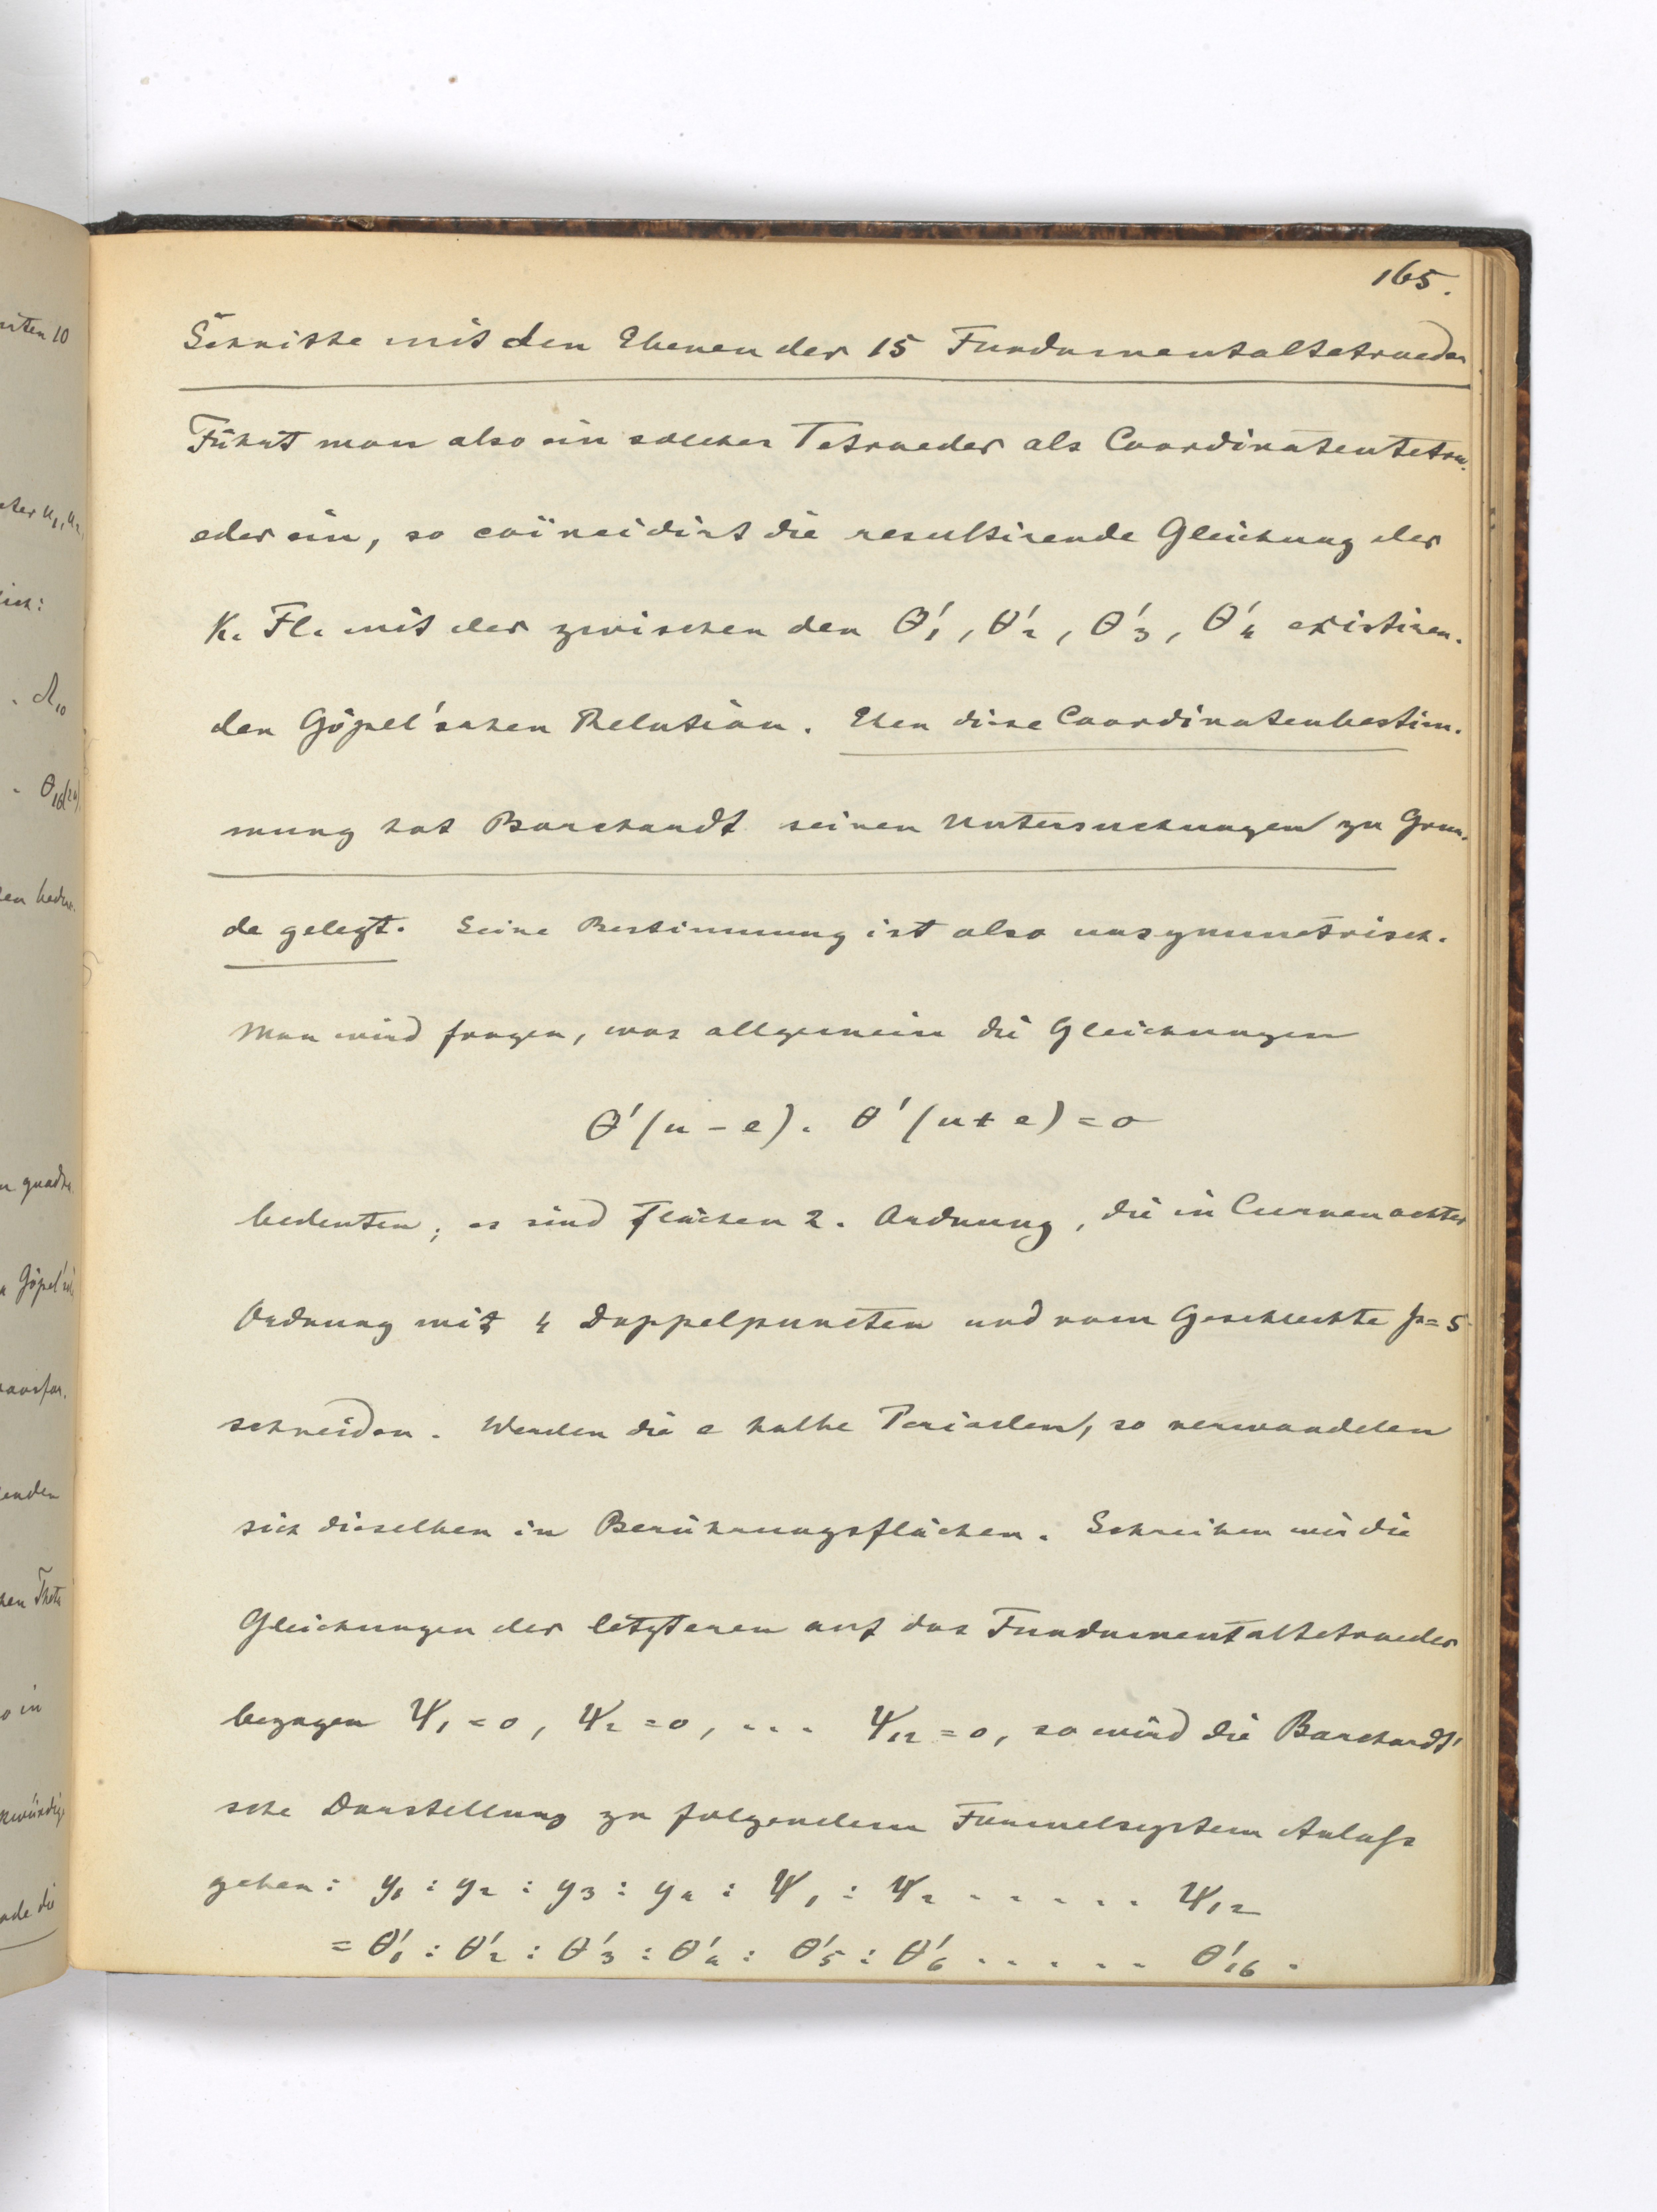 165.
Schnitte mit den Ebenen der 15 Fundamentaltetraeder
Führt man also ein solches Tetraeder als Coordinatentetra-
eder ein, so coïncidirt die resultirende Gleichung der
K. Fl. mit der zwischen den θ'₁, θ'₂, θ'₃, θ'₄ existiren-
den Göpel'schen Relation. Eben diese Coordinatenbestim-
mung hat Borchardt seinen Untersuchungen zu Grun-
de gelegt. Seine Bestimmung ist also unsymmetrisch.
Man wird fragen, was allgemein die Gleichungen
θ'(u-e). θ'(u+e)=0
bedeuten; es sind Flächen 2. Ordnung, die in Curven achter
Ordnung mit 4 Doppelpuncten und vom Geschlechte p=5
schneiden. Werden die e halbe Perioden, so verwandelen
sich dieselben in Berührungsflächen. Schreiben wir die
Gleichungen der letzteren auf das Fundamentaltetraeder
bezogen Ψ₁=0, Ψ₂=0, ... Ψ₁₂=0, so wird die Borchardt'
sche Darstellung zu folgendem Formelsystem Anlaß
geben: y₁ : y₂ : y₃ : y₄ : Ψ₁ : Ψ₂ ...... Ψ₁₂
= θ'₁ : θ'₂ : θ'₃ : θ'₄ : θ'₅ : θ'₆ ...... θ'₁₆.